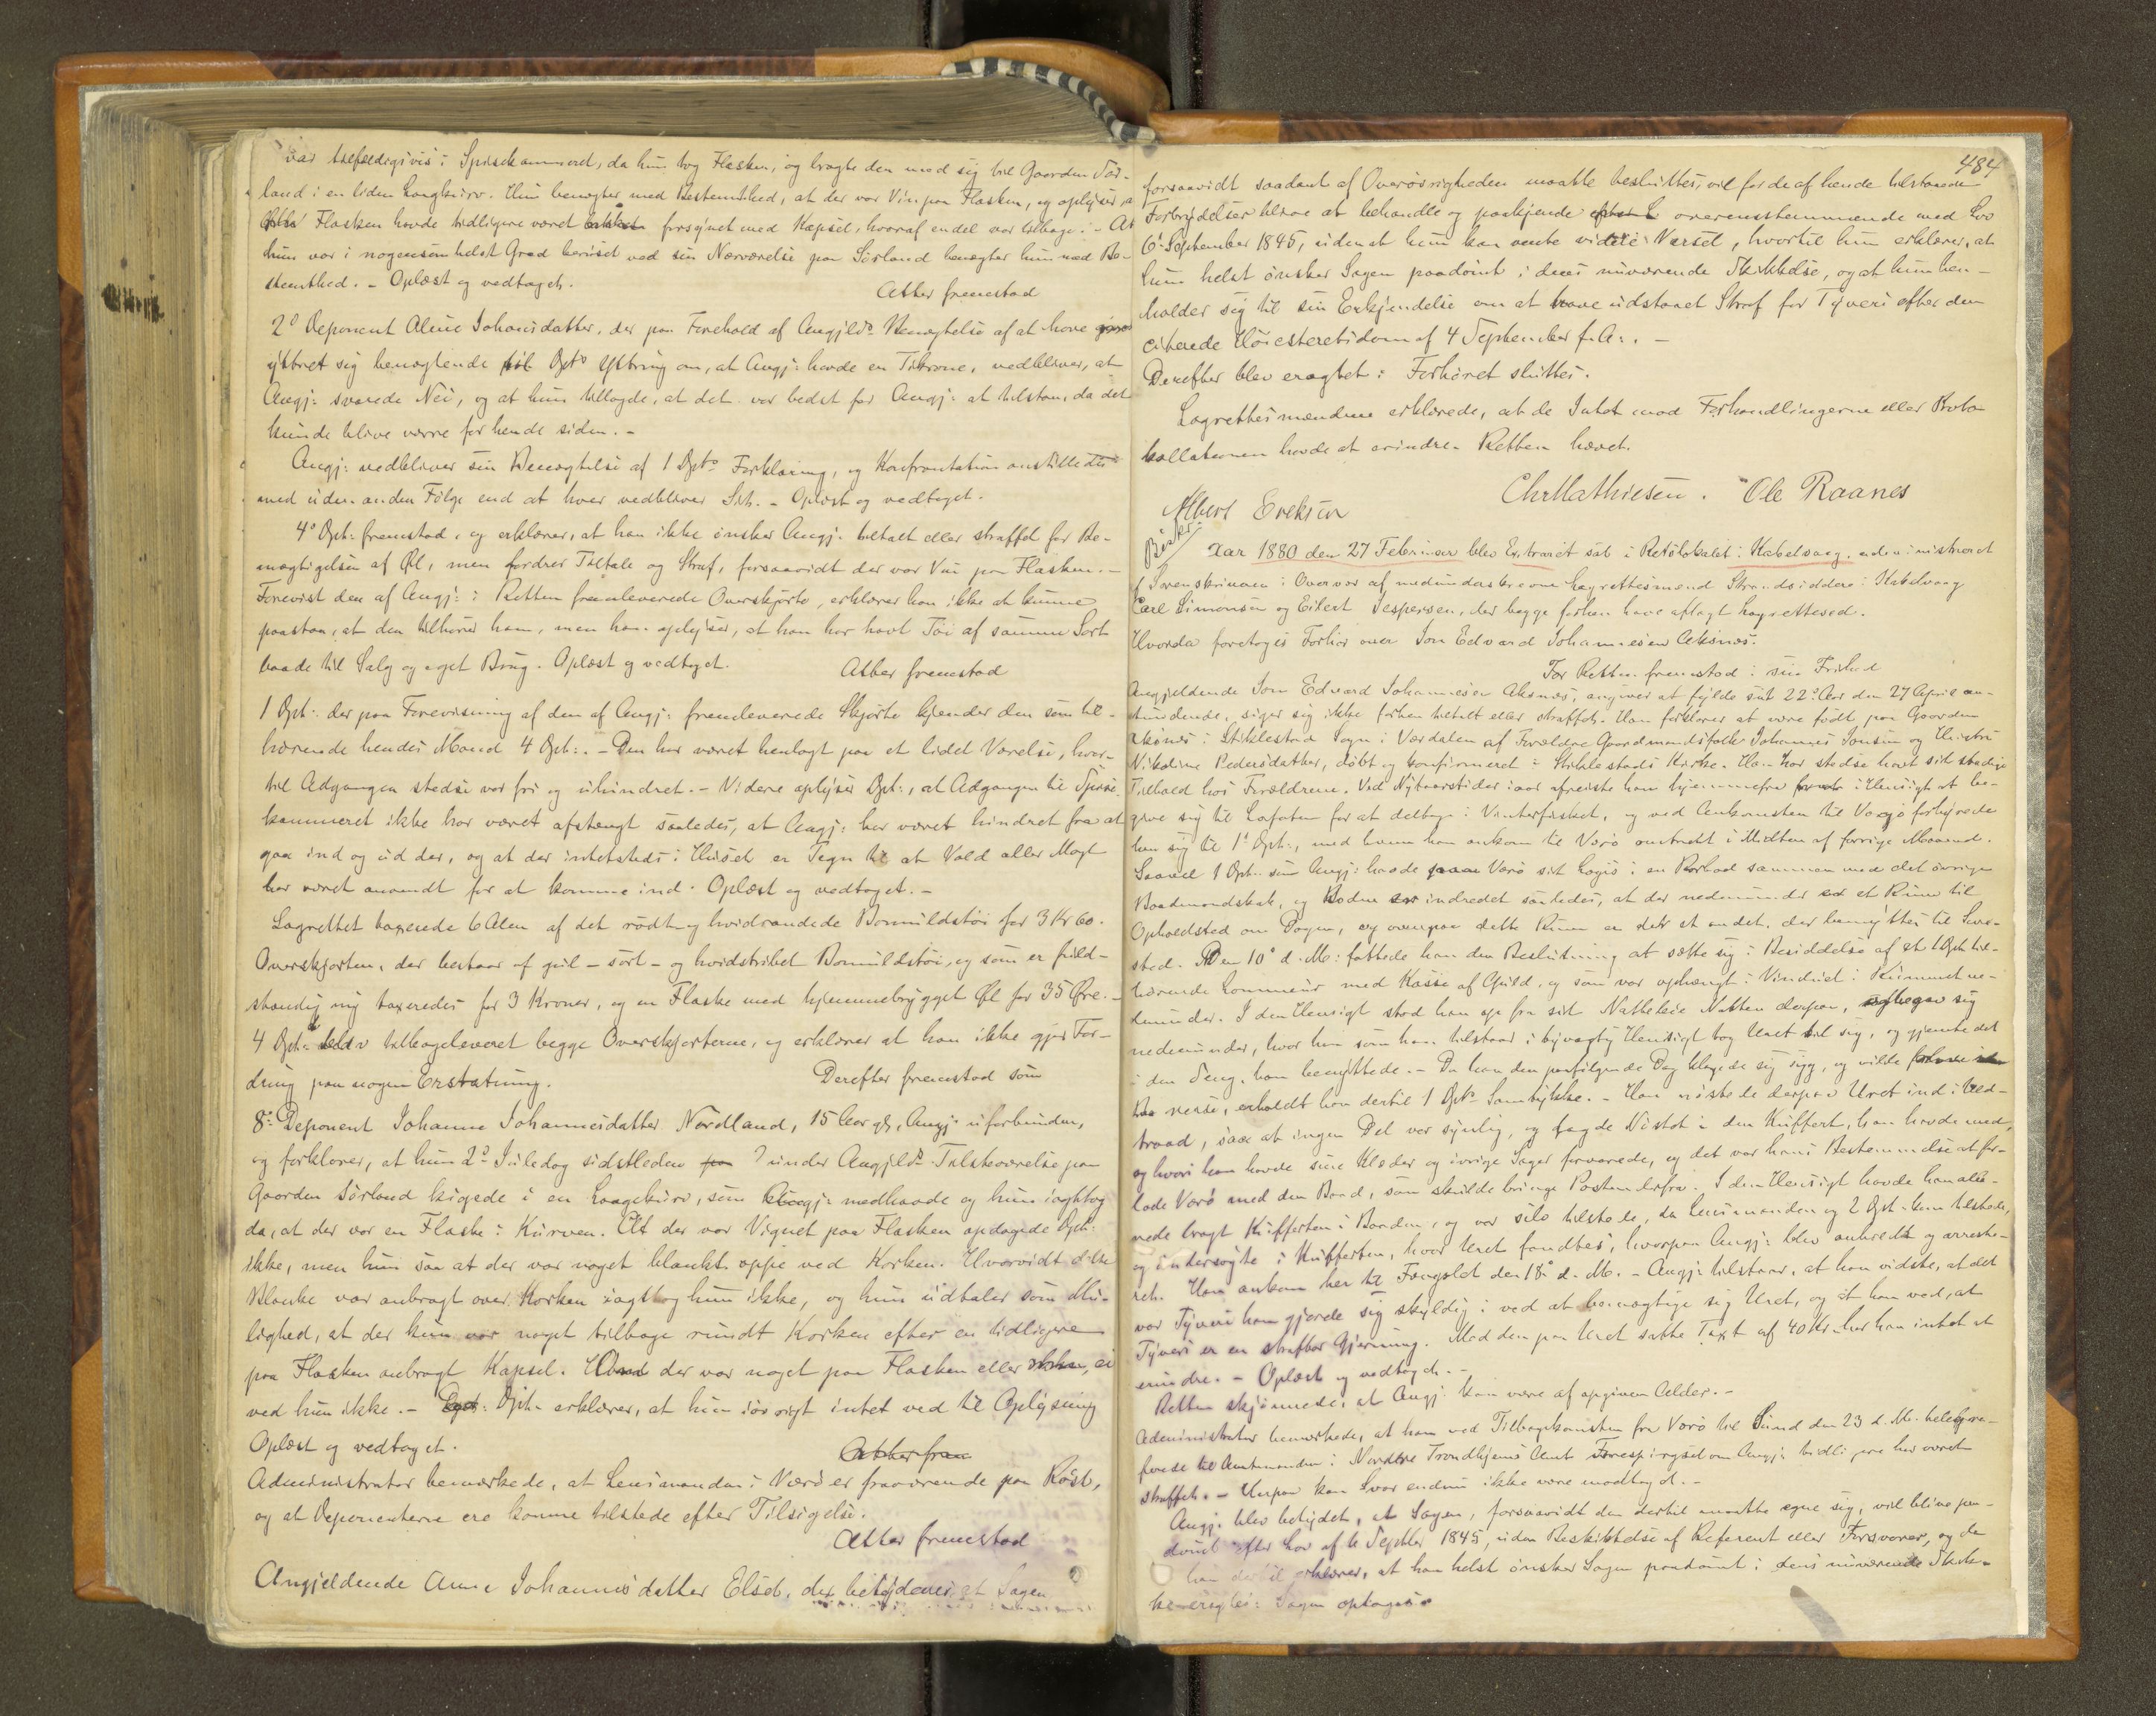 var tilfældigvis i Spisekammeret, da hun tog Flasken, og bragte den med sig til Gaarden Sör-
land i en liden Laagkurv. Hun benegter med Bestemthed, at der var Vin paa Flasken, og oplyser, a
Flasken havde tidligere været forsynet med Kapsel, hvoraf en del var tilbage. - At
hun var i nogensomhelst Grad beruset ved sin Nærværelse paa Sörland benegter hun med Be-
stemthed. - Oplæst og vedtaget.
Atter fremstod
2° Deponent Aline Johansdatter, der paa Forehold af Angjlds Benegtelse af at have
yttret sig benegtende til Dpts Yttring om, at Angj: havde en Tikrone, vedbliver, at
Angj: svarede Nei, og at hun tillagde, at det var bedst for Angj: at tilstaa, da det
kunde blive værre for hende siden. -
Angj: vedbliver sin Benegtelse af 1 Dpts Forklaring, og Konfrontation anstilledes
med uden anden Fölge end at hver vedbliver Sit. - Oplæst og vedtaget.
4° Dpt: fremstod, og erklærer, at han ikke önsker Angj: tiltalt eller straffet for Be-
mægtigelsen af Öl, men fordrer Tiltale og Straf, forsaavidt der var Vin paa Flasken. -
Forevist den af Angj: i Retten fremleverede Overskjorte, erklærer han ikke at kunne
paastaa, at den tilhører ham, men han oplyser, at han har havt Töi af samme Sort
baade til Salg og eget Brug. Oplæst og vedtaget.
Atter fremstod
1 Dpt: der paa Forevisning af den af Angj: fremleverede Skjorte kjender den som til-
hørende hendes Mand 4 Dpt:. - Den har været henlagt paa et lidet Værelse, hvor-
til Adgangen stedse var fri og uhindret. - Videre oplyser Dpt:, at Adgangen til Spise-
kammeret ikke har været afstængt saaledes, at Angj: har været hindret fra at
gaa ind og ud der, og at der intetsteds i Huset er Tegn til at Vold eller Magt
har været anvendt for at komme ind. Oplæst og vedtaget. -
Lagrettet taxerede 6 Alen af det rödt- og hvidrandede Bomuldstöi for 3 Kr 60.
Overskjorten, der bestaar af gul - sort - og hvidstribet Bomuldstöi, og som er fuld-
stændig ny taxeredes for 3 Kroner, og en Flaske med hjemmebrygget Öl for 35 Öre. -
4 Dpt: blev tilbageleveret begge Overskjorterne, og erklærer at han ikke gjør For-
dring paa nogen Erstatning.
Derefter fremstod som
8de Deponent Johanne Johannesdatter Nordland, 15 Aar gl, Angj: uforbunden,
og forklarer, at hun 2den Juledag sidstleden under Angjlds Tilstedeværelse paa
Gaarden Sörland kigede i en Laagekurv, som Angj: medhavde og hun iagttog
da, at der var en Flaske i Kurven. At der var Vignet paa Flasken opdagede Dpt:
ikke, men hun saa at der var noget blankt oppe ved Korken. Hvorvidt dette
Blanke var anbragt over Korken iagttog hun ikke, og hun udtaler som Mu-
lighed, at der kun var noget tilbage rundt Korken efter en tidligere
paa Flasken anbragt Kapsel. Om der var noget paa Flasken eller ei
ved hun ikke. - Dpt: erklærer, at hun iövrigt intet ved til Oplysning
Oplæst og vedtaget.
Atter frem
Administrator bemærkede, at Lensmanden i Værö er fraværende paa Röst,
og at Deponenterne ere komne tilstede efter Tilsigelse.
Atter fremstod
Angjeldende Anne Johannesdatter Elset, der betydedes, at Sagen
484
forsaavidt saadant af Överövrigheden maatte besluttes, vil for de af hende tilstaaede
Forbrydelser blive at behandle og paakjende overensstemmende med Lov
6' September 1845, uden at hun kan vente videre Varsel, hvortil hun erklærer, at
hun helst önsker Sagen paadömt i dens nuværende Skikkelse, og at hun hen-
holder sig til sin Erkjendelse om at have udstaaet Straf for Tyveri efter den
citerede Höiesteretsdom af 4 September f. A:. -
Derefter blev eragtet: Forhöret sluttes.
Lagrettesmændene erklærede, at de Intet mod Forhandlingerne eller Proto-
kollationen havde at erindre. Retten hævet.
Chr Mathiesen. Ole Raanes
Albert Ereksen
Beskr.
Aar 1880 den 27 Februar blev Extraret sat i Retslokalet i Kabelvaag, administreret
af Sorenskriveren i Overvær af medunderskrevne Lagrettesmænd Strandsiddere i Kabelvaag
Carl Simonsen og Eilert Jespersen, der begge forhen have aflagt Lagretteseed.
Hvorda foretoges Forhör over Jon Edvard Johannesen Aksnes.
For Retten fremstod i sin Frihed
Angjeldende Jon Edvard Johannesen Aksnes, angiver at fylde sit 22de Aar den 27 April an-
stundende, siger sig ikke forhen tiltalt eller straffet. Han forklarer at være födt paa Gaarden
Aksnes i Stiklestad Sogn i Værdalen af Forældre Gaardmandsfolk Johannes Jonsen og Hustru
Nikoline Pedersdatter, döbt og konfirmeret i Stiklestads Kirke. Han har stedse havt sit stadige
Tilhold hos Forældrene. Ved Nytaarstider iaar afreiste han hjemmefra i Hensigt at be-
give sig til Lofoten for at deltage i Vinterfisket, og ved Ankomsten til Vaagö forhyrede
han sig til 1° Dpt:, med hvem han ankom til Værö omtrent i Midten af forrige Maaned.
Saavel 1 Dpt: som Angj: havde paa Værö sit Logis i en Rorbod sammen med det övrige
Baadmandskab, og Boden er indredet saaledes, at der nedenunder er et Rum til
Opholdsted om Dagen, og ovenpaa dette Rum er der et andet, der benyttes til Sove-
sted. Den 10° d. M: fattede han den Beslutning at sætte sig i Besiddelse af et 1 Dpt til-
hørende Lommeur med Kasse af Guld, og som var ophængt i Vinduet i Rummet ne-
denunder. I den Hensigt stod han op fra sit Natteleie Natten derpaa, begav sig
nedenunder, hvor han som han tilstaar i tyvagtig Hensigt tog Uret til sig, og gjemte det
i den Seng, han benyttede. - Da han den paafølgende Dag klagede sig syg, og vilde
reise, erholdt han dertil 1 Dpts Samtykke. - Han nöstede derpaa Uret ind i Ved-
traad, saa at ingen Del var synlig, og lagde Nöstet i den Kuffert, han havde med,
og hvori han havde sine Klæder og övrige Sager forvarede, og det var hans Bestemmelse at for-
lade Værö med den Baad, som skulde bringe Posten derfra. I den Hensigt havde han alle-
rede bragt Kufferten i Baaden, og var selv tilstede, da Lensmanden og 2 Dpt: kom tilstede,
og undersögte i Kufferten, hvor Uret fandtes, hvorpaa Angj: blev anholdt og arreste-
ret. Han ankom her til Fængslet den 18de d. M. - Angj: tilstaar, at han vidste, at det
var Tyveri han gjorde sig skyldig i ved at bemægtige sig Uret, og at han ved, at
Tyveri er en strafbar Gjerning. Med den paa Uret satte Taxt af 40 Kr. har han intet at
erindre. - Oplæst og vedtaget. -
Retten skjønnede, at Angj: kan være af opgiven Alder. -
Administrator bemærkede, at han ved Tilbagekomsten fra Værö til Sund den 23 d. M. telegra-
ferede til Amtmanden i Nordre Trondhjems Amt Forespörgsel om Angj: tidligere har været
straffet. - Herpaa kan Svar endnu ikke være modtaget. -
Angj: blev betydet, at Sagen, forsaavidt den dertil maatte egne sig, vil blive paa-
dömt efter Lov af 6 Septbr 1845, uden Beskikkelse af Referent eller Forsvarer, og da
han dertil erklærer, at han helst önsker Sagen paadömt i dens nuværende Skik-
Sagen optages.